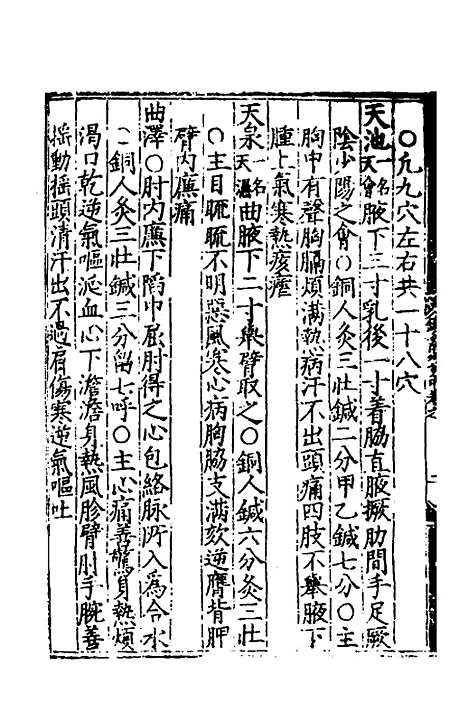 ○凡九穴左右共一十八穴
天池一名天會腋下三寸乳後一寸着脇直腋撅肋間手足厥
陰少陽之會○銅人灸三壯鍼二分甲乙鍼七分○主
胸中有聲胸膈煩滿熱病汗不出頭痛四肢不舉腋下
腫上氣寒熱痎瘧
天泉一名天濕曲腋下二寸舉臂取之○銅人鍼六分灸三壯
○主目䀮䀮不明惡風寒心病胸脇支滿欬逆膺背胛
臂內廉痛
曲澤○肘內廉下陷中屈肘得之心包絡脉所入爲合水
○銅人灸三壯鍼三分留七呼○主心痛善驚身熱煩
渴口乾逆氣嘔涎血心下澹澹身熱風胗臂肘手腕善
揺動揺頭清汗出不過肩傷寒逆氣嘔吐